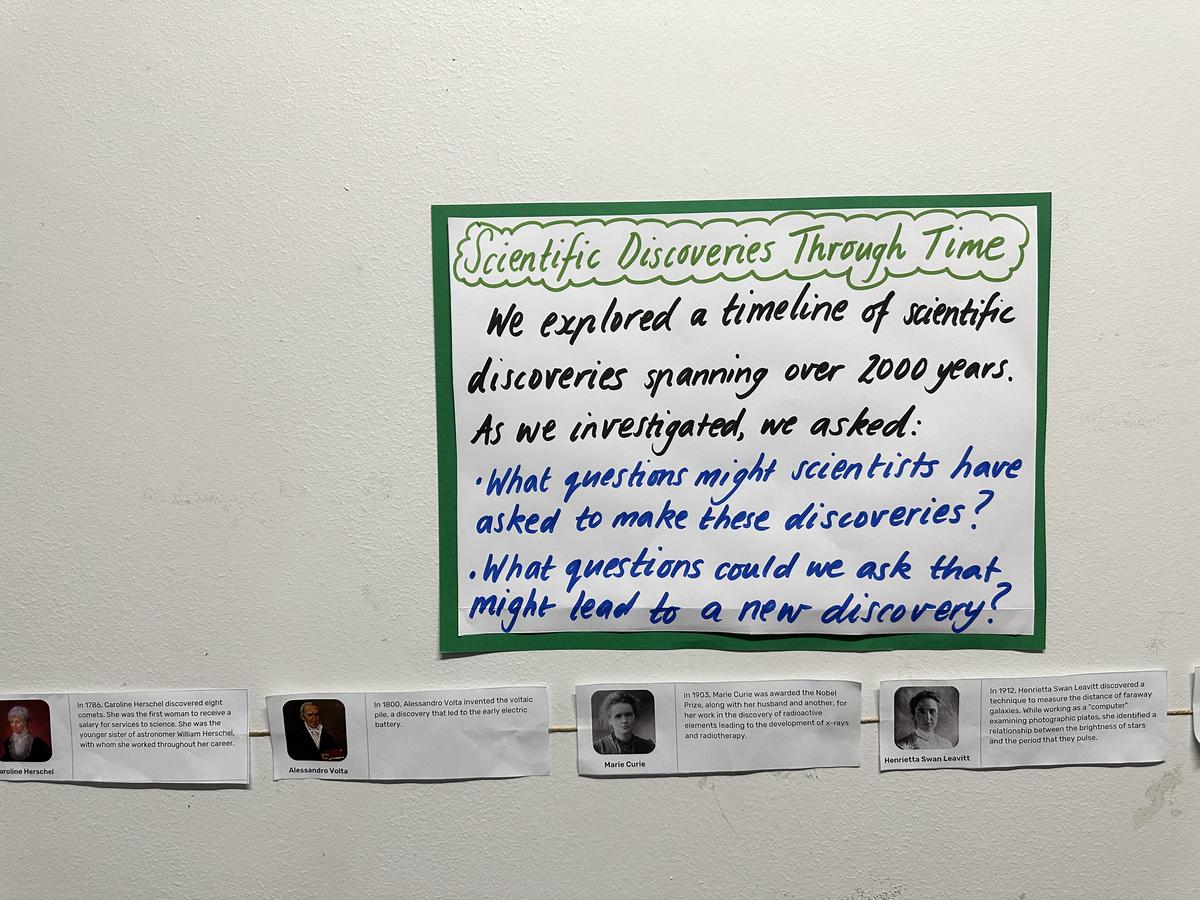 Scientific Discoveries Through Time
We explored a timeline of scientific
discoveries spanning over 2000 years.
As we investigated, we asked:
·What questions might scientists have
asked to make these discoveries?
·What questions could we ask that
might lead to a new discovery?
In 1786, Caroline Herschel discovered eight
comets. She was the first woman to receive a
salary for services to science. She was the
younger sister of astronomer William Herschel,
with whom she worked throughout her career.
aroline Herschel
In 1800, Alessandro Volta invented the voltaic
pile, a discovery that led to the early electric
battery.
Alessandro Volta
In 1903, Marie Curie was awarded the Nobel
Prize, along with her husband and another, for
her work in the discovery of radioactive
elements leading to the development of x-rays
and radiotherapy.
Marie Curie
In 1912, Henrietta Swan Leavitt discovered a
technique to measure the distance of faraway
galaxies. While working as a "computer"
examining photographic plates, she identified a
relationship between the brightness of stars
and the period that they pulse.
Henrietta Swan Leavitt